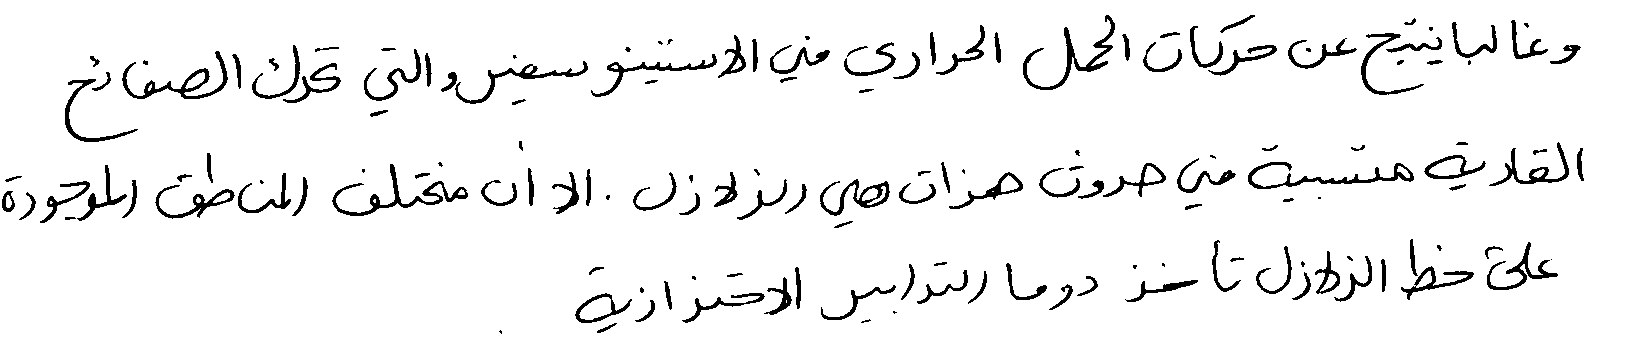 وغالبا ينتج عن حركات الحمل الحراري في الاستينوسفير والتي تحرك الصفائح
القارية متسببة في حدوث همزات هي الزلازل . الا أن مختلف المناطق الموجودة
على خط الزلازل تأخذ دوما التدابير الاحتزازية